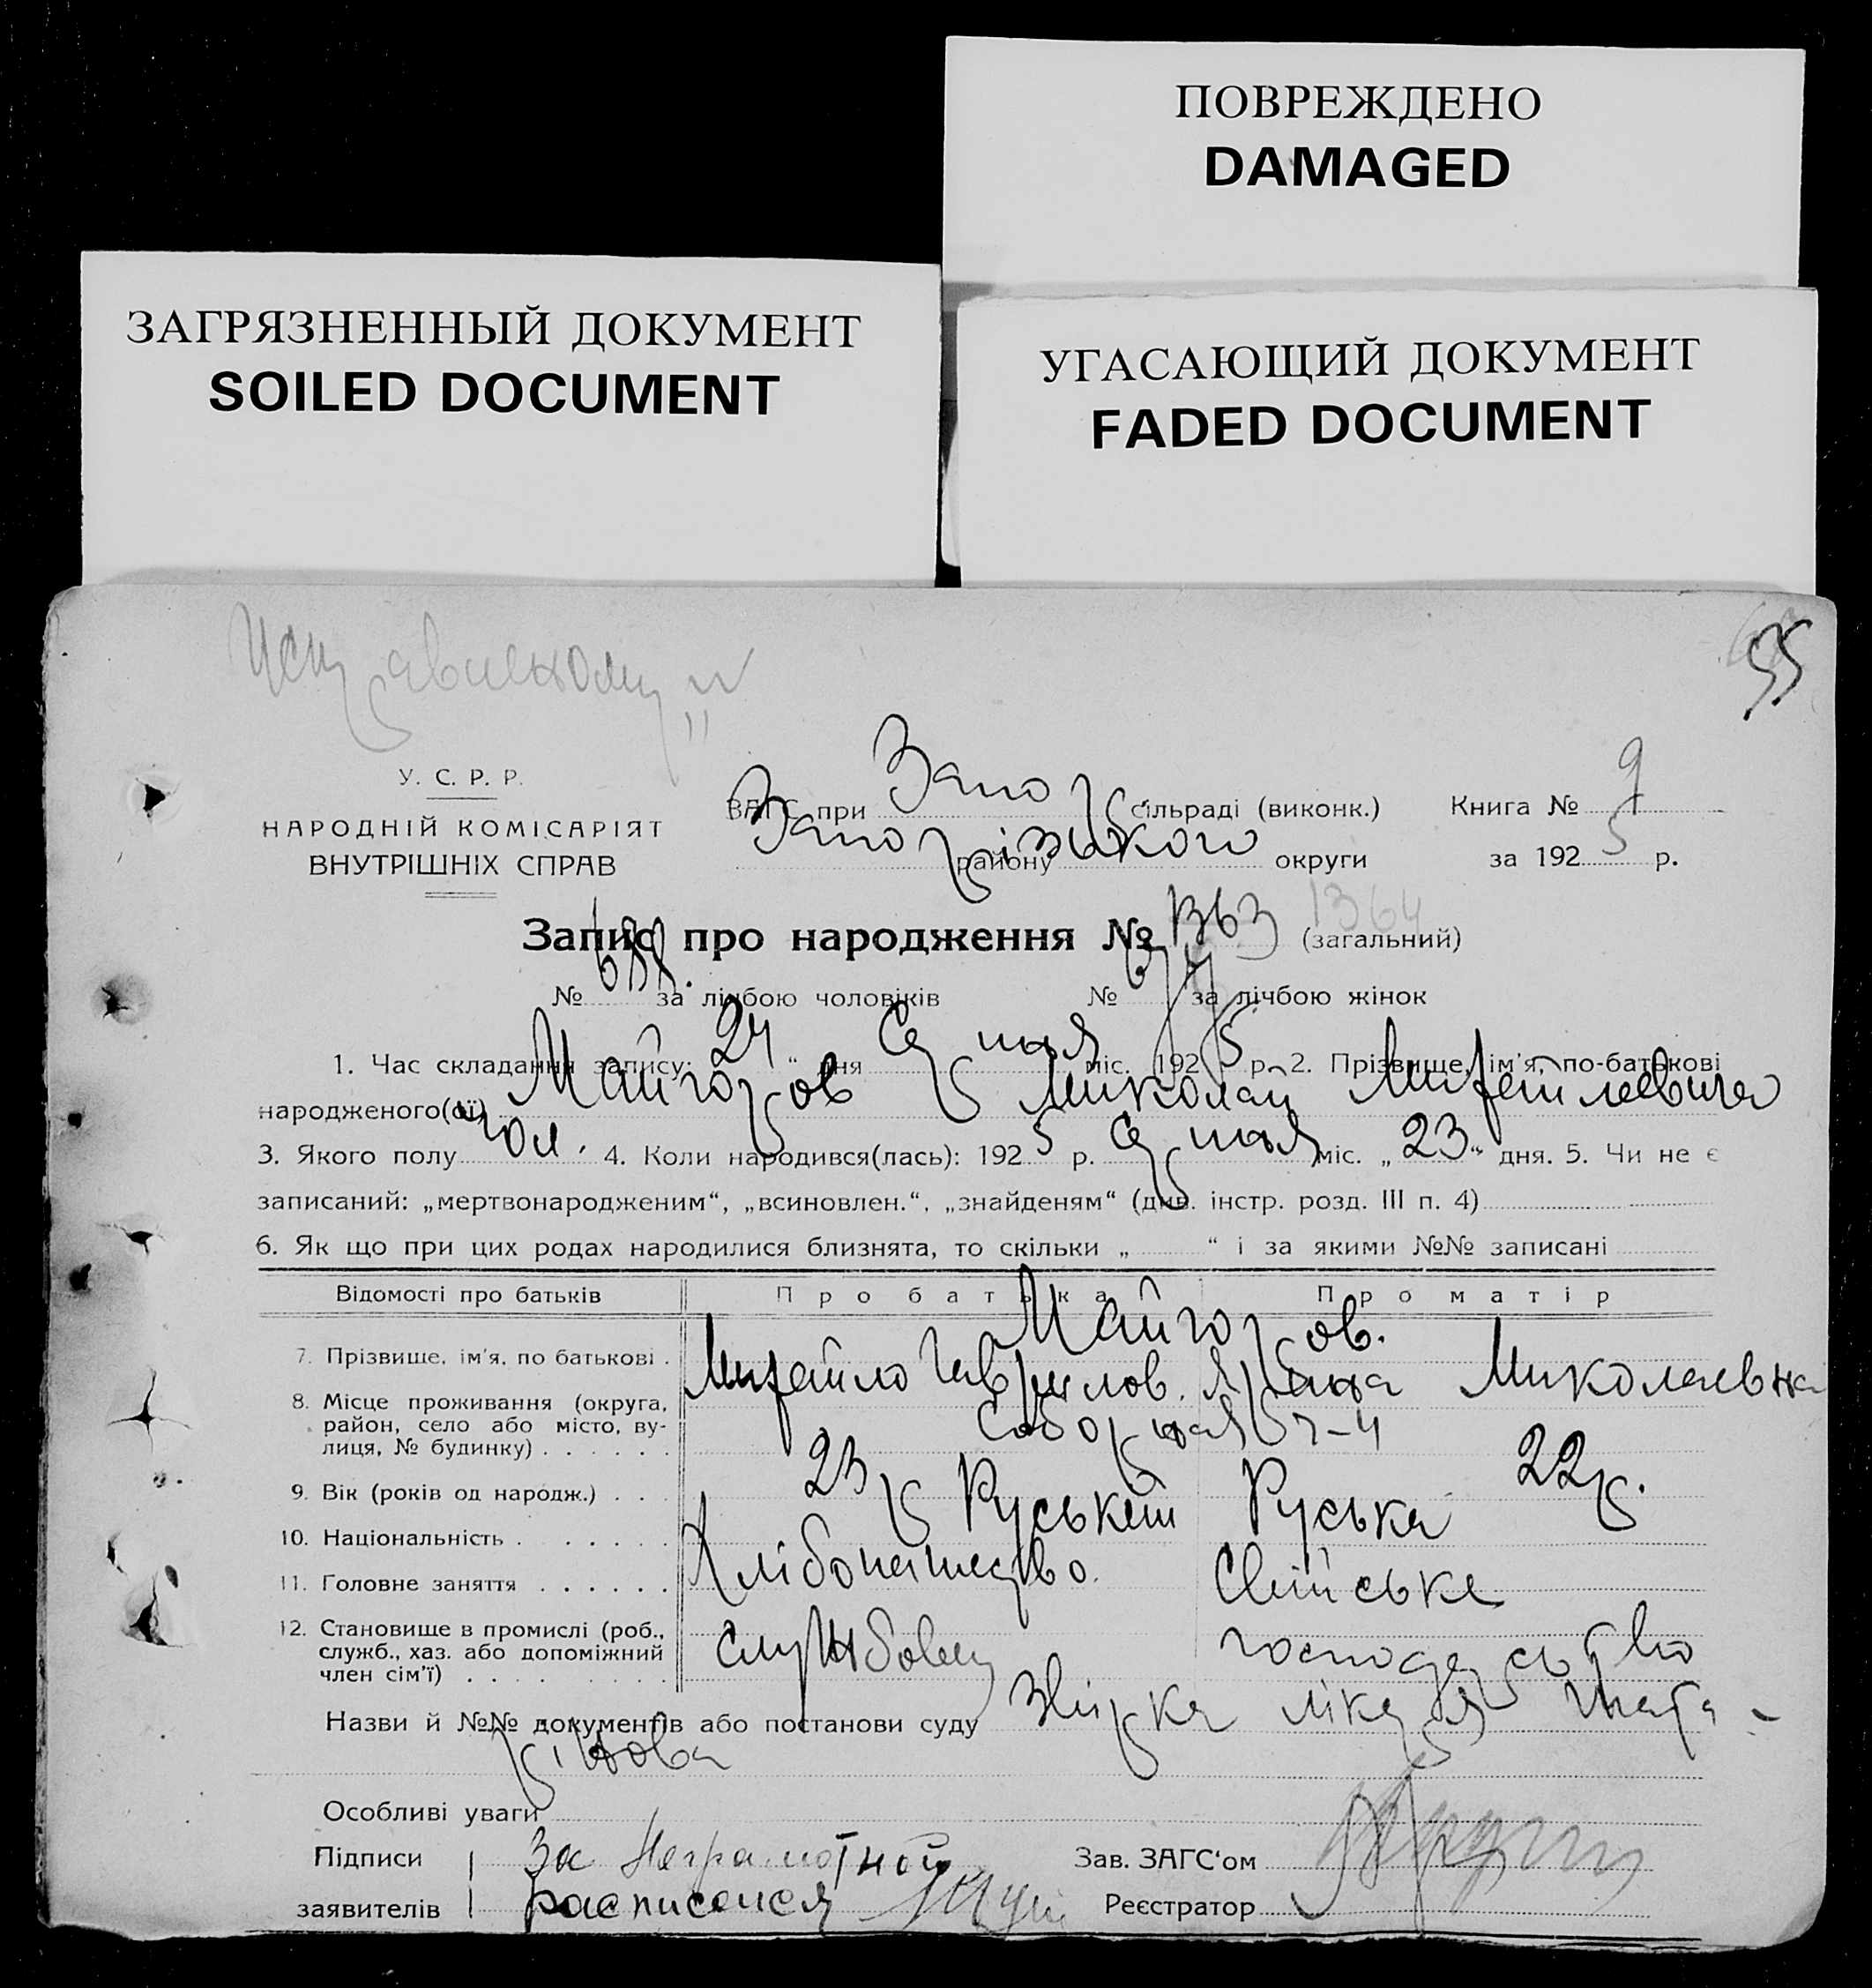 ПОВРЕЖДЕНО
DAMAGED
ЗАГРЯЗНЕННЫЙ ДОКУМЕНТ
SOILED DOCUMENT
УГАСАЮЩИЙ ДОКУМЕНТ
FADED DOCUMENT
55
У. С. Р. Р.
НАРОДНІЙ КОМІСАРІЯТ
ВНУТРІШНІХ СПРАВ
ЗАГС при Запор сільраді (виконк.) Книга № 9
Запорізького району округи за 1925 р.
Запис про народження № 1363 1364 (загальний)
№ за лічбою чоловіків № за лічбою жінок
1. Час складання запису: 24 " дня Серпня міс. 1925 р. 2. Прізвище, ім'я, по-батькові
народженого(ої) Майгоров Миколай Михайлович
3. Якого полу чол. 4. Коли народився(лась): 1925 р. Серпня міс. „ 23 " дня. 5. Чи не є
записаний: „мертвонародженим", „всиновлен.", „знайденям" (див. інстр. розд. III п. 4)
6. Як що при цих родах народилися близнята, то скільки „ " і за якими №№ записані
Відомості про батьків Про батька Про матір
Майгоров.
7. Прізвище, ім'я, по батькові . Михайло Гаврилов. Миколаевна
8. Місце проживання (округа, район, село або місто, вулиця, № будинку) . . . . . . Соборная
9. Вік (років од народж.) . . . 23 р. 22 р.
10. Національність . . . . . . Руський Руська
11. Головне заняття . . . . . . Хлібопашество. Свійське
12. Становище в промислі (роб., служб., хаз. або допоміжний член сім'ї) . . . . . . . . Службовец господарство
Назви й №№ документів або постанови суду лікаря
Особливі уваги
Підписи За Неграмотной Зав. ЗАГС'ом
заявителів расписался Реєстратор